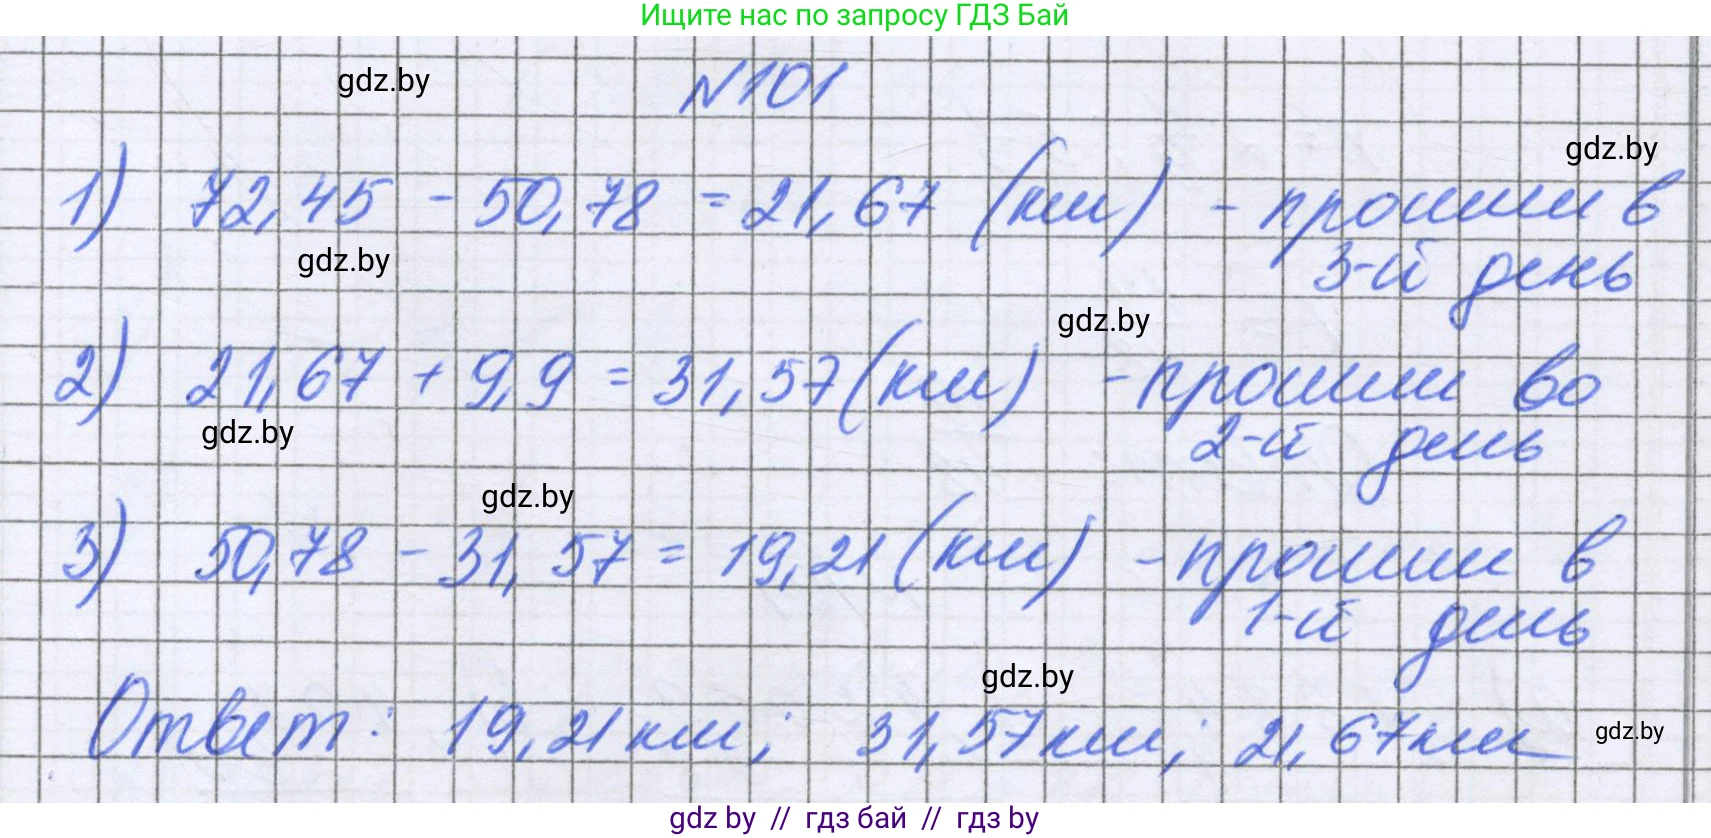 Ищите нас по запросу ГДЗ Бай
gdz.by
№101
gdz.by
1) 72,45 - 50,78 = 21,67 (км) - прошли в
3-й день
gdz.by
gdz.by
2) 21,67 + 9,9 = 31,57 (км) - прошли во
2-й день
gdz.by
gdz.by
3) 50,78 - 31,57 = 19,21 (км) - прошли в
1-й день
gdz.by
Ответ: 19,21 км; 31,57 км; 21,67 км
gdz.by
gdz by // гдз бай // гдз by